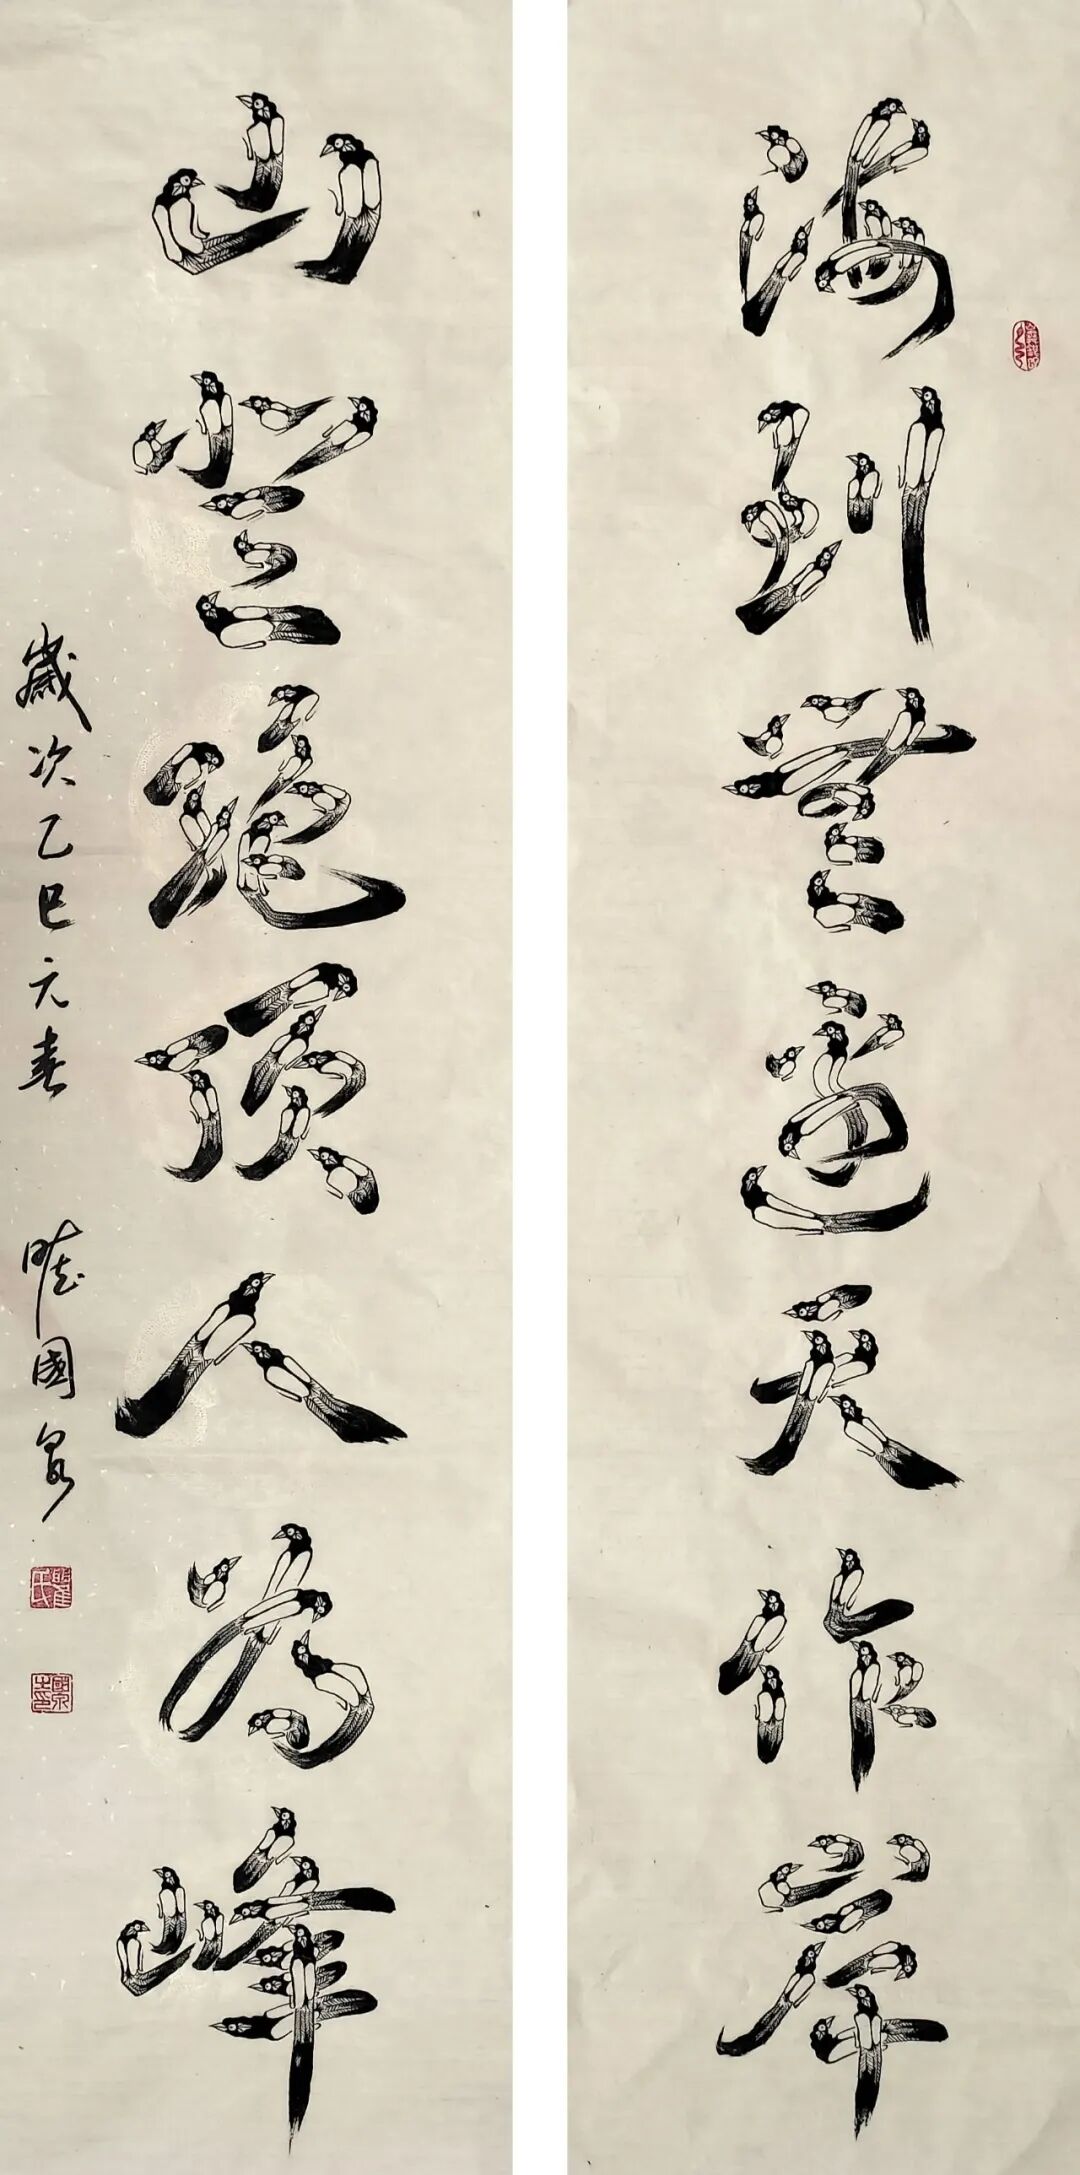 海到無邊天作岸
山登絕頂人為峰
歲次乙巳元春 睢國泉
國泉之印